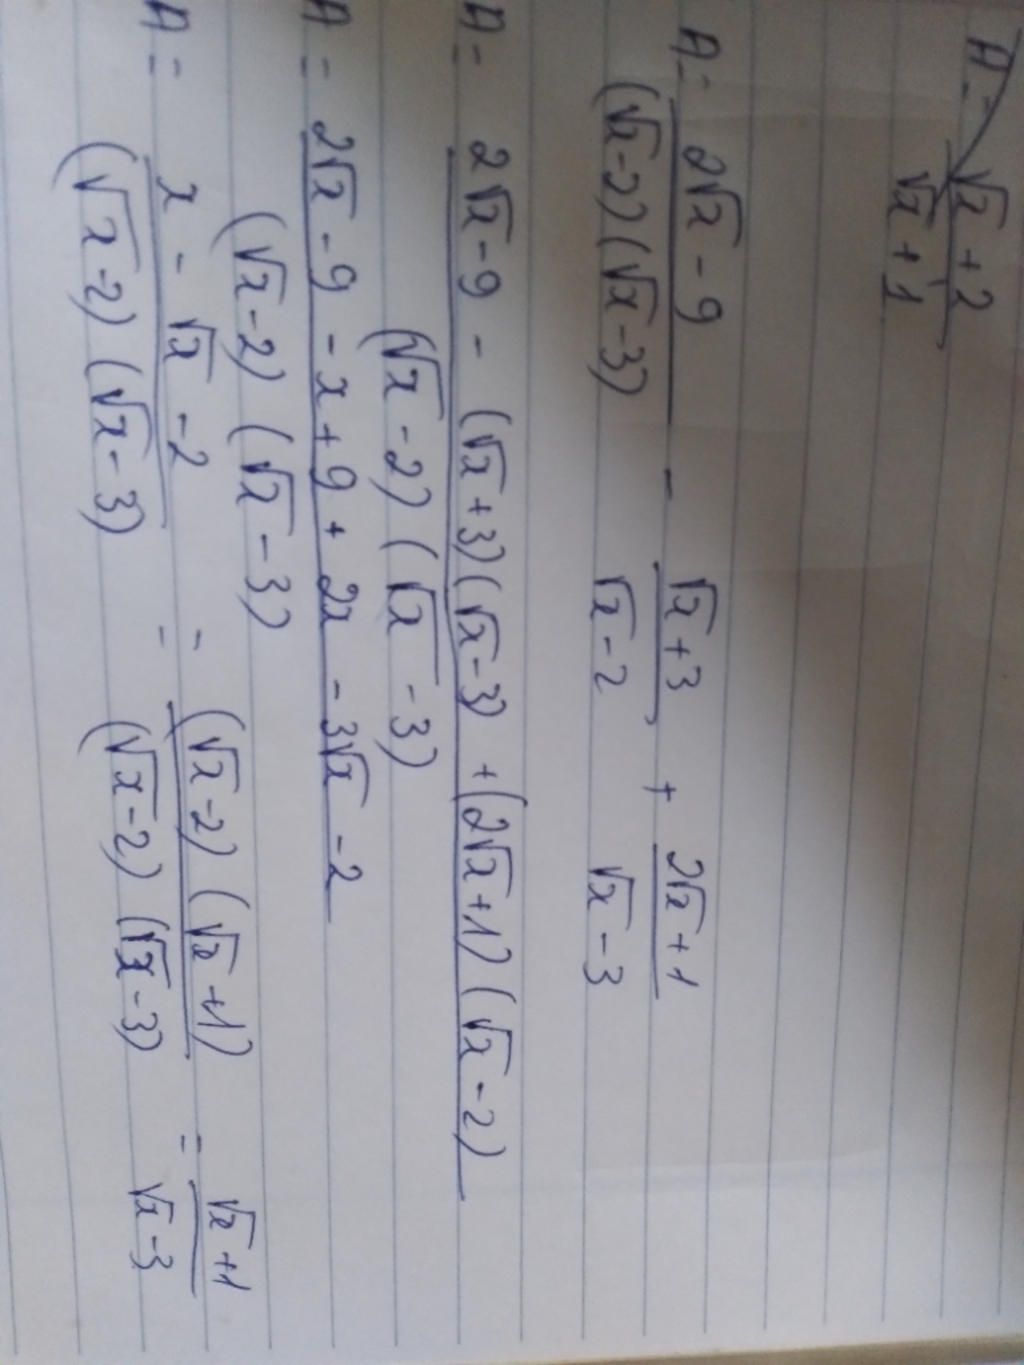 A = (√x + 2)/(√x + 1)
A = (2√x - 9)/((√x - 2)(√x - 3)) - (√x + 3)/(√x - 2) + (2√x + 1)/(√x - 3)
A = (2√x - 9 - (√x + 3)(√x - 3) + (2√x + 1)(√x - 2))/((√x - 2)(√x - 3))
A = (2√x - 9 - x + 9 + 2x - 3√x - 2)/((√x - 2)(√x - 3))
A = (x - √x - 2)/((√x - 2)(√x - 3)) = ((√x - 2)(√x + 1))/((√x - 2)(√x - 3)) = (√x + 1)/(√x - 3)